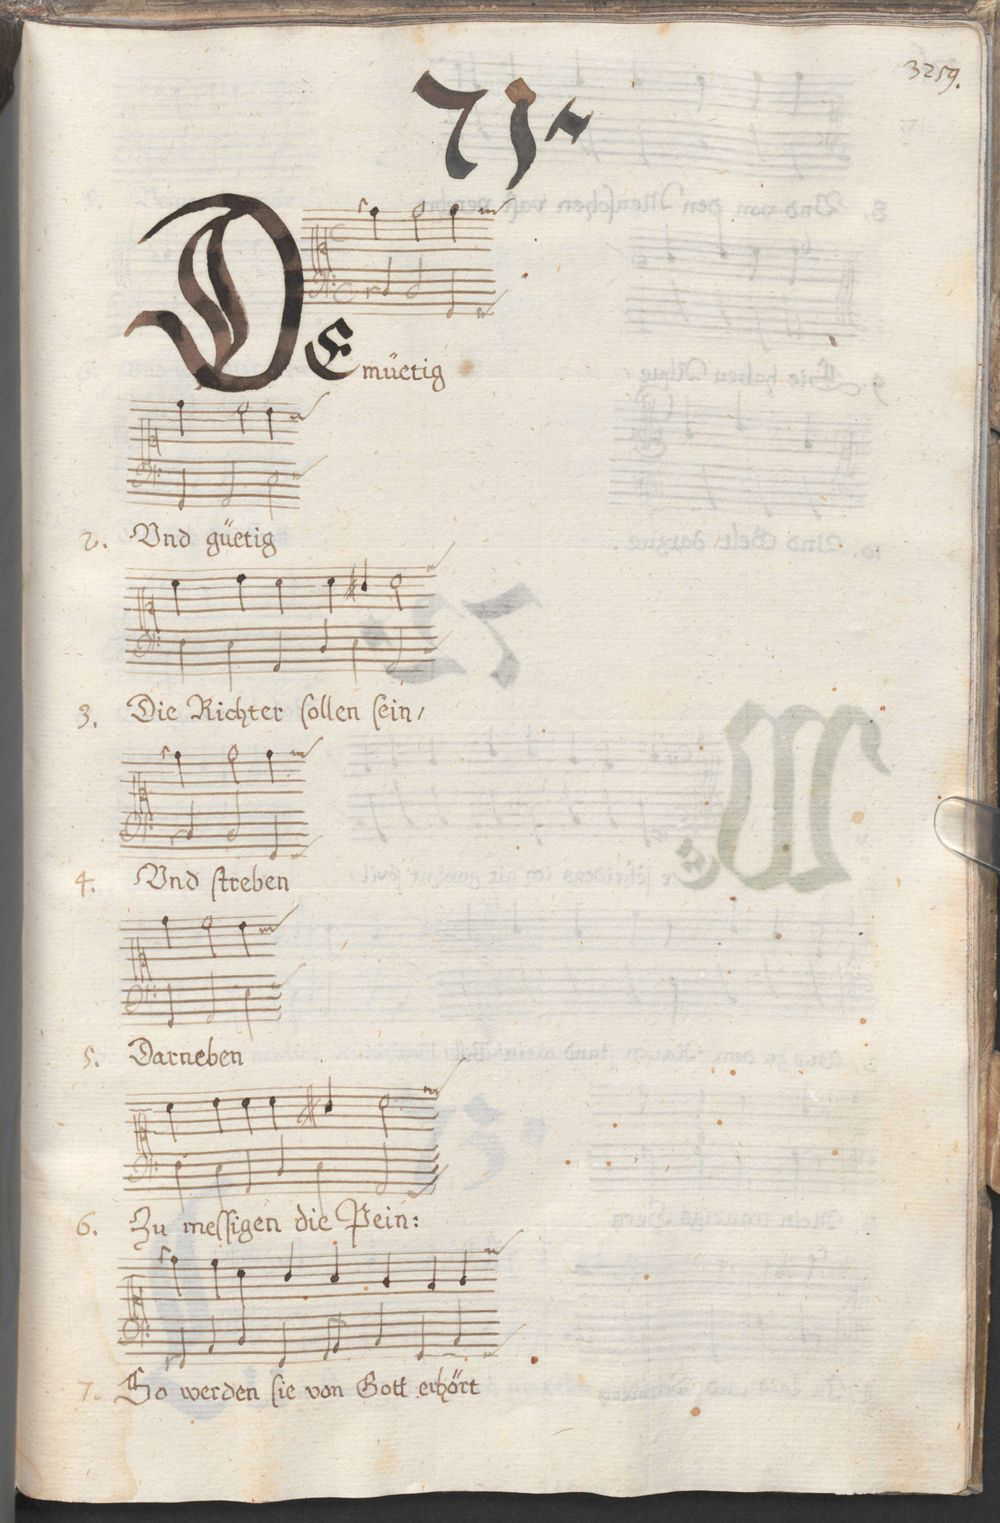 3259.
71.
DEmüetig
2. Vnd güetig
3. Die Richter sollen sein/
4. Vnd streben
5. Darneben
6. Zu messigen die Pein:
7. So werden sie von Gott erhört